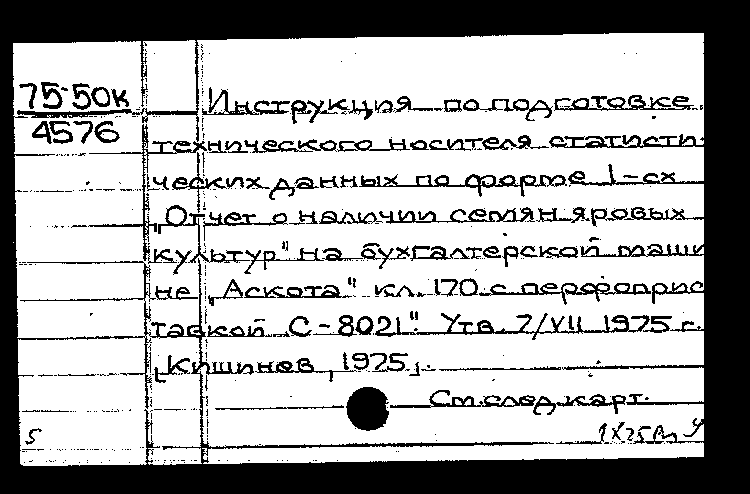 75-50к
4576
Инструкция по подготовке
технического носителя статисти-
ческих данных по форме 1-сх
"Отчет о наличии семян яровых
культур" на бухгалтерской маши
не "Аскота" кл. 170 с перфоприс
тавкой С-8021". Утв. 7/VII 1975 г.
[Кишинев, 1975].
См. след. карт.
5